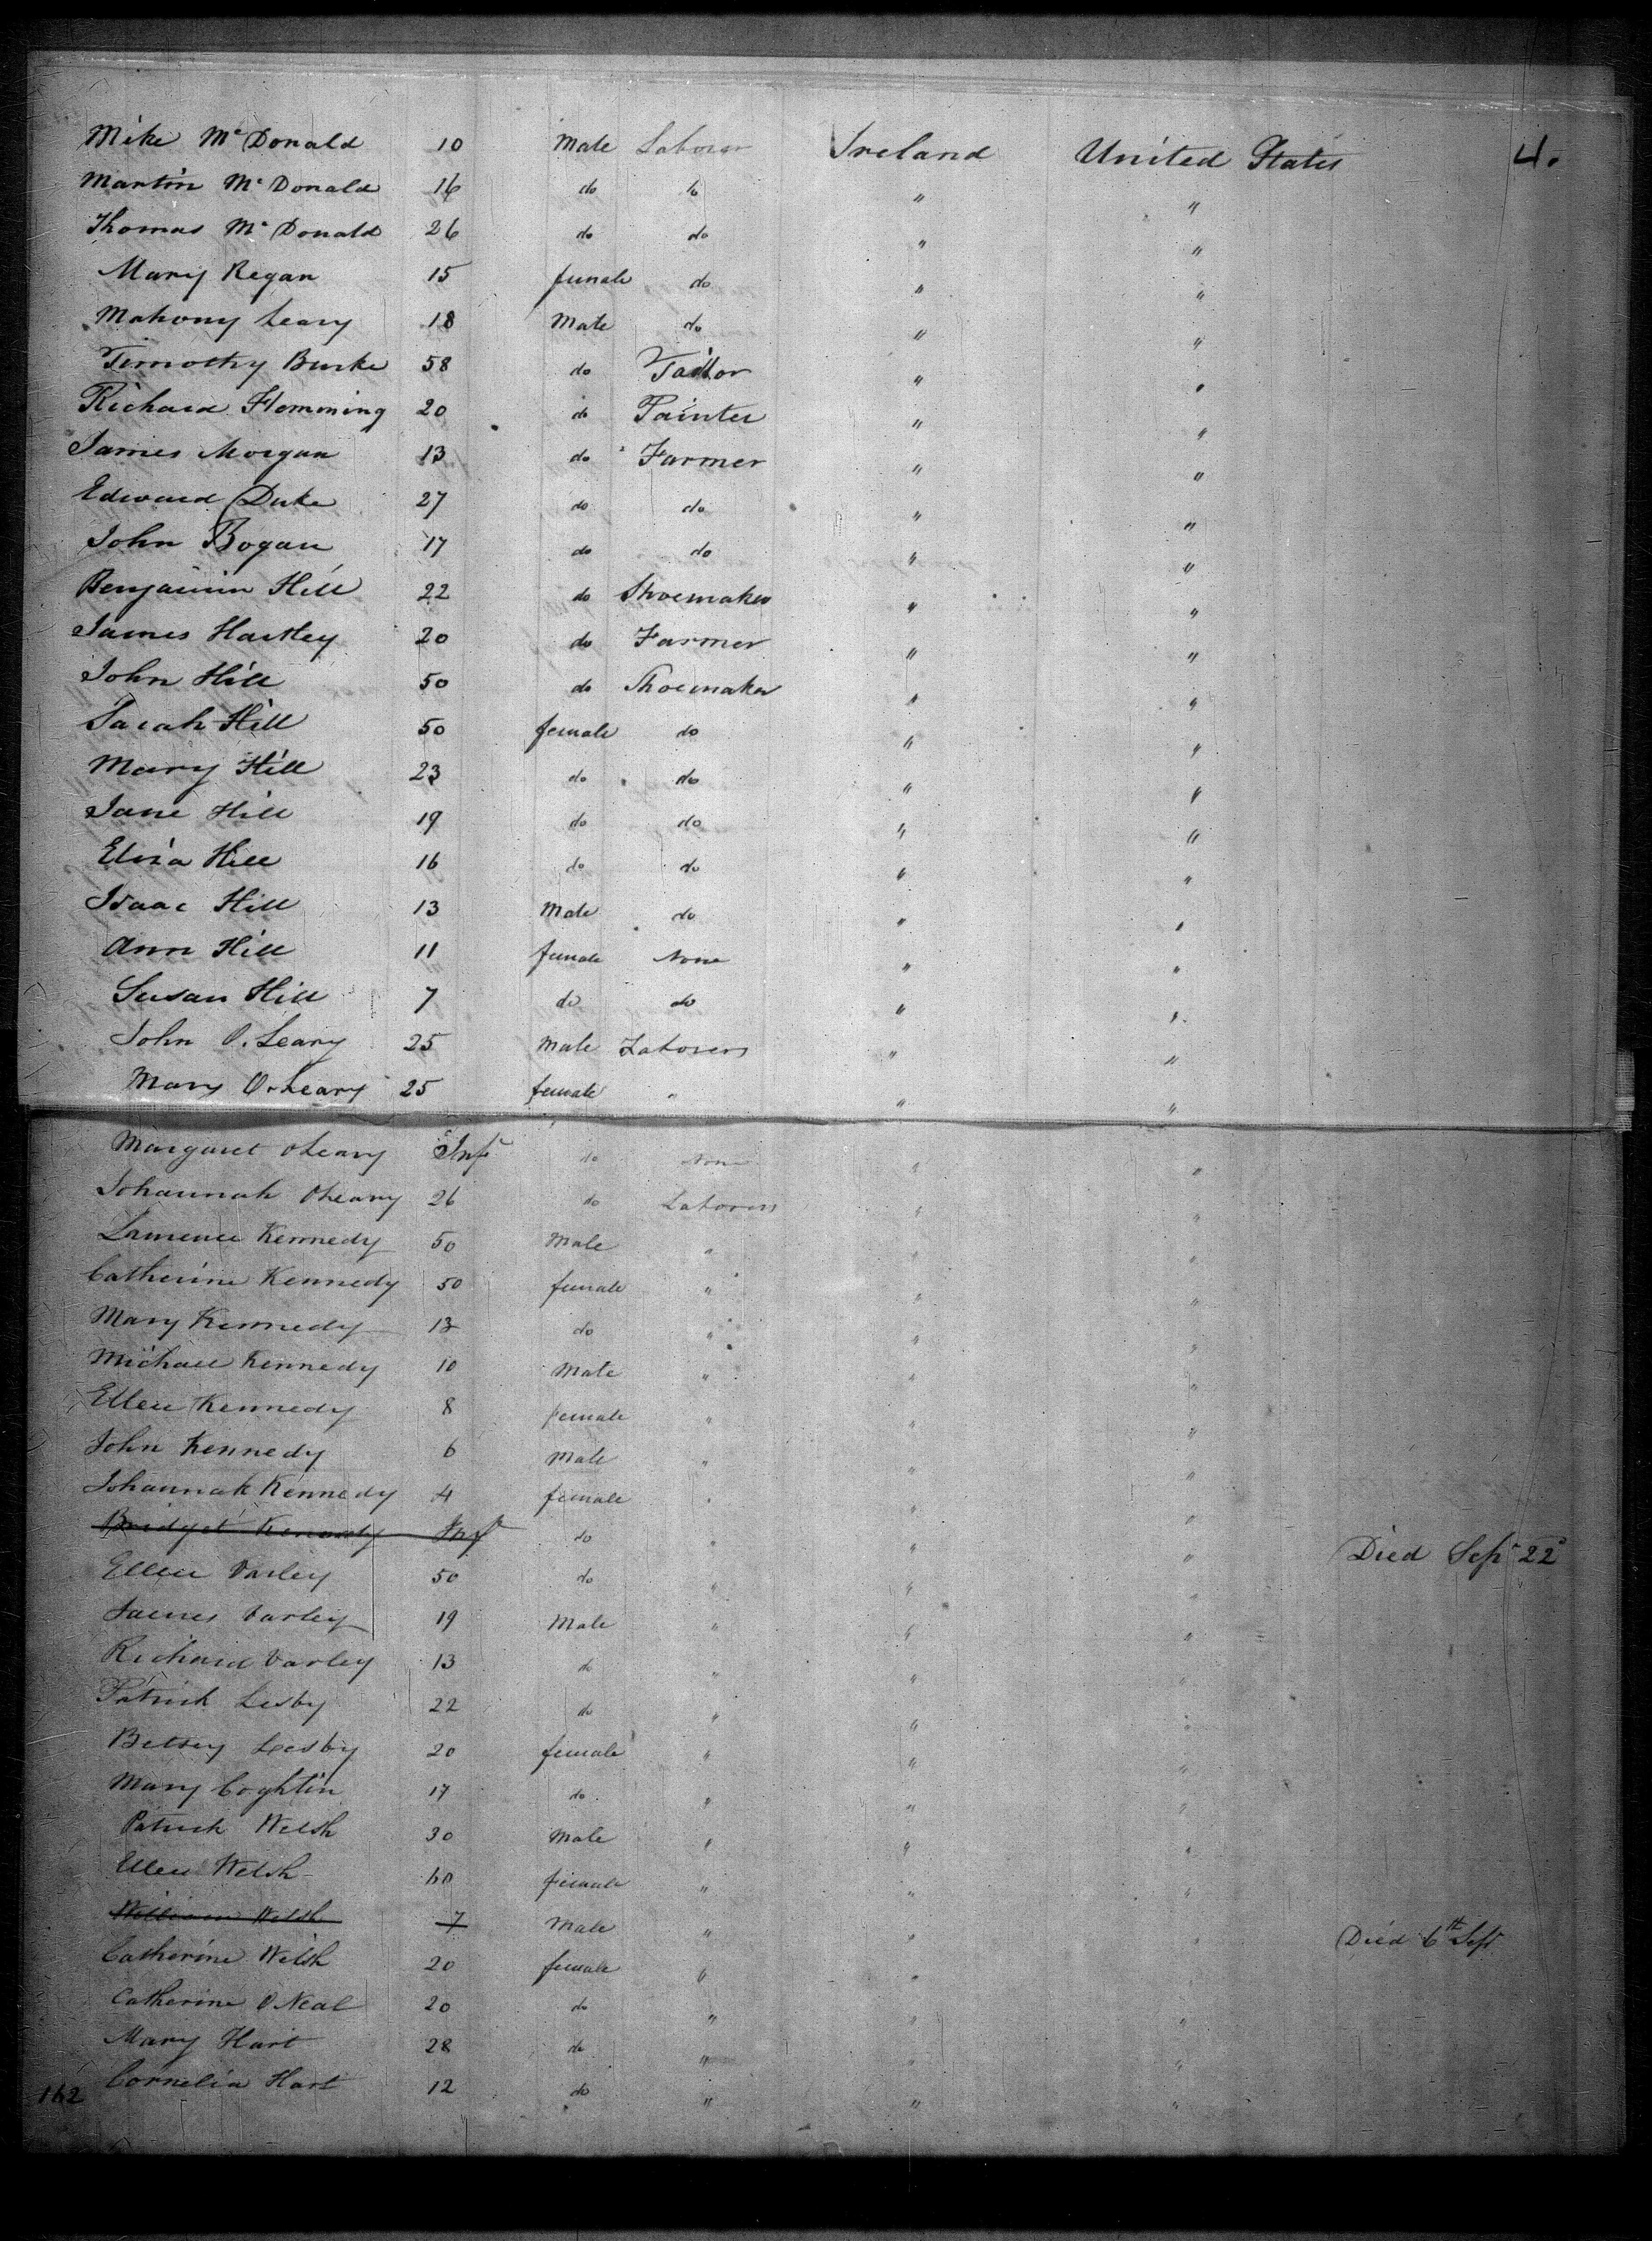 Mike McDonald 10 Male Laborer Ireland United States 4.
Martin McDonald 16 do do " "
Thomas McDonald 26 do do " "
Mary Regan 15 female do " "
Mahony Leary 18 Male do " "
Timothy Burke 58 do Tailor " "
Richard Flemming 20 do Painter " "
James Morgan 13 do Farmer " "
Edward Duke 27 do do " "
John Bogan 17 do do " "
Benjamin Hill 22 do Shoemaker " "
James Hartley 20 do Farmer " "
John Hill 50 do Shoemaker " "
Sarah Hill 50 female do " "
Mary Hill 23 do do " "
Jane Hill 19 do do " "
Eliza Hill 16 do do " "
Isaac Hill 13 Male do " "
Ann Hill 11 female None " "
Susan Hill 7 do do " "
John O. Leary 25 Male Laborers " "
Mary O. Leary 25 female " " "
Margaret OLeary Inft do None " "
Johannah OLeary 26 do Laborers " "
Lawrence Kennedy 50 Male " " "
Catherine Kennedy 50 female " " "
Mary Kennedy 13 do " " "
Michael Kennedy 10 Male " " "
Ellen Kennedy 8 female " " "
John Kennedy 6 Male " " "
Johannah Kennedy 4 female " " "
Bridget Kennedy Inft do " " " Died Sept 22d
Ellen Varley 50 do " " "
James Varley 19 Male " " "
Richard Varley 13 do " " "
Patrick Lesby 22 do " " "
Betsey Lesby 20 female " " "
Mary Coghlin 17 do " " "
Patrick Welsh 30 Male " " "
Ellen Welsh 60 female " " "
William Welsh 7 Male " " " Died 6th Sept
Catherine Welsh 20 female " " "
Catherine O Neal 20 do " " "
Mary Hart 28 do " " "
Cornelia Hart 12 do " " "
162